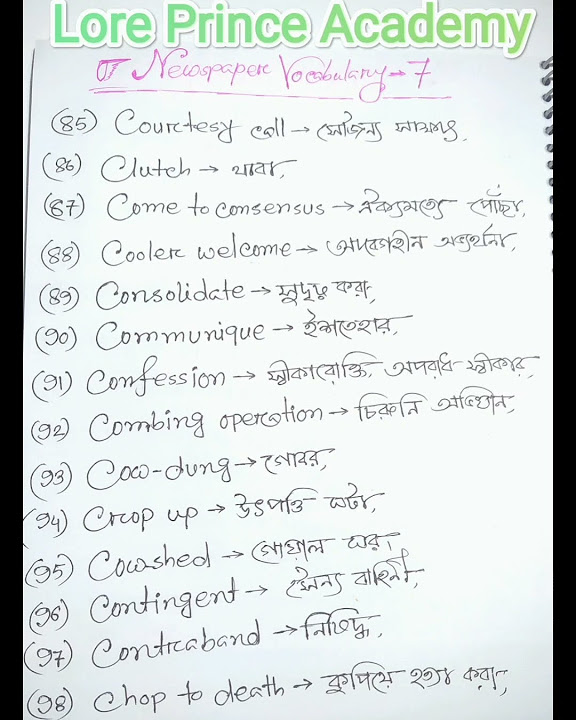 Lore Prince Academy
Newspaper Vocabulary → 7
(85) Courtesy call → সৌজন্য সাক্ষাৎ,
(86) Clutch → থাবা,
(87) Come to consensus → ঐক্যমত্যে পৌঁছা,
(88) Cooler welcome → আবেগহীন অভ্যর্থনা,
(89) Consolidate → সুদৃঢ় করা,
(90) Communique → ইশতেহার,
(91) Confession → স্বীকারোক্তি, অপরাধ স্বীকার,
(92) Combing operation → চিরুনি অভিযান,
(93) Cow-dung → গোবর,
(94) Crop up → উৎপত্তি ঘটা,
(95) Cowshed → গোয়াল ঘর,
(96) Contingent → সৈন্য বাহিনী,
(97) Contraband → নিষিদ্ধ,
(98) Chop to death → কুপিয়ে হত্যা করা,